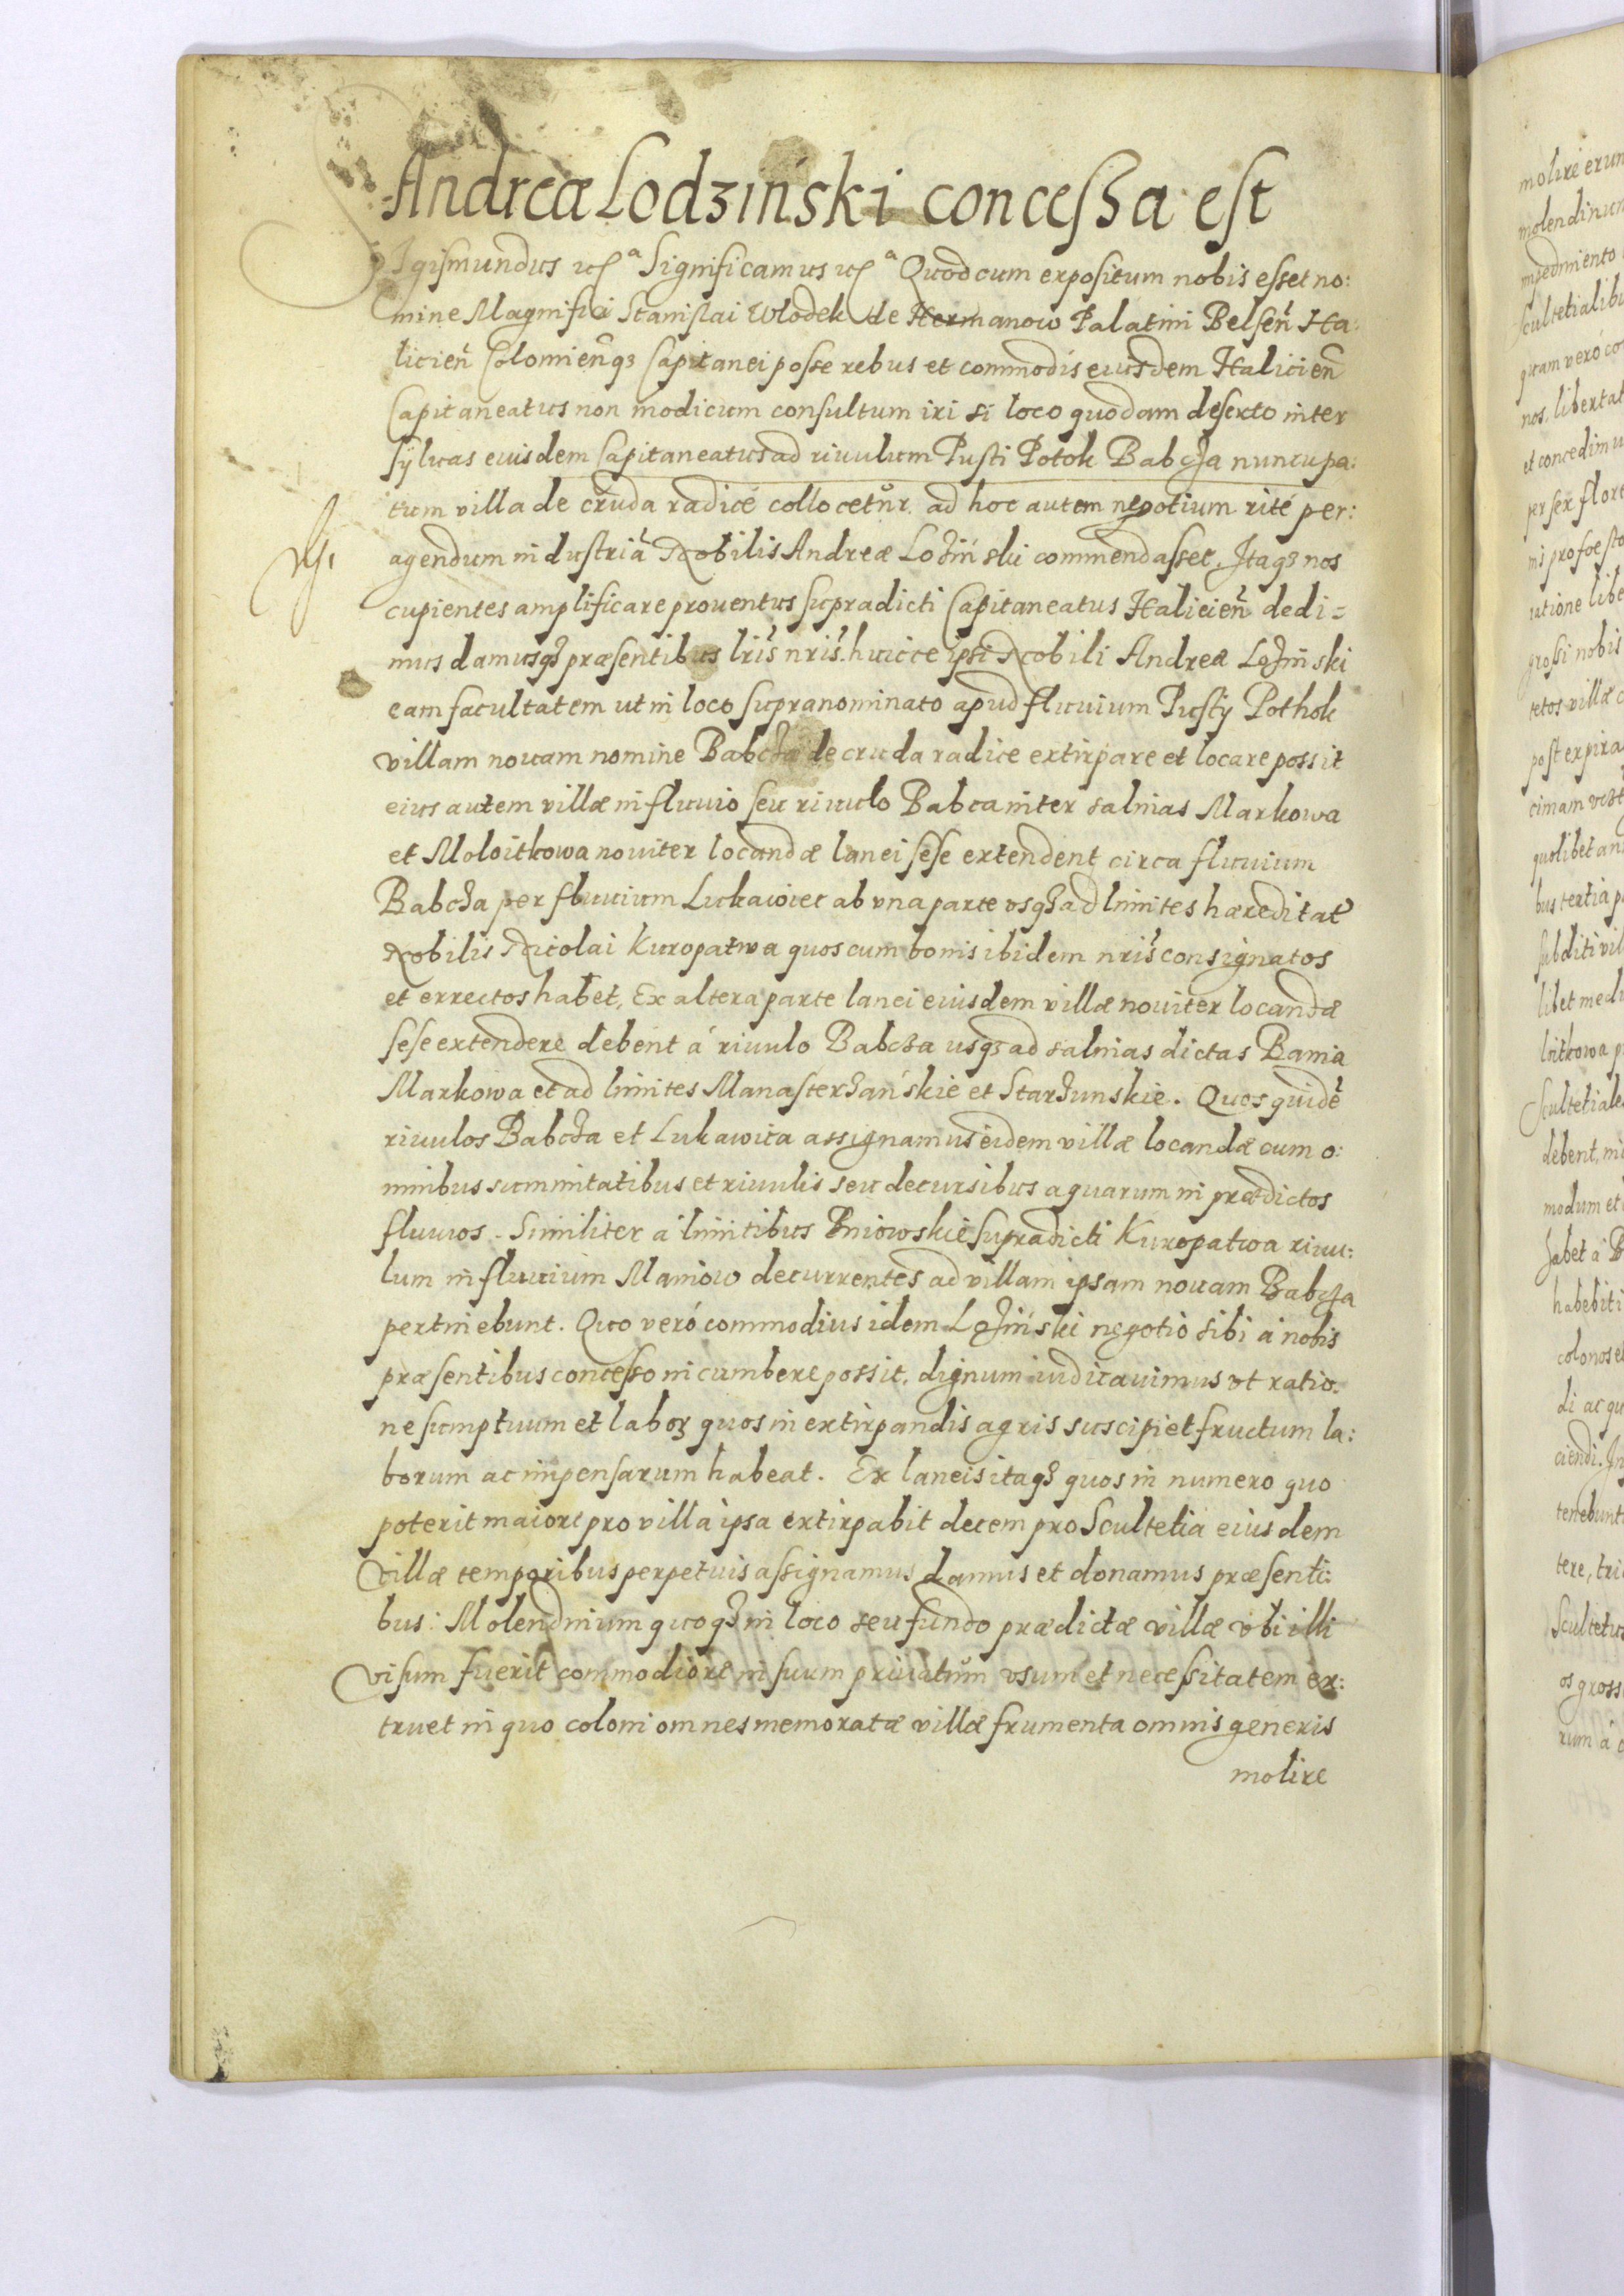 Andreæ Lodziński concessa est
Sigismundus etcª Significamus etcª Quod cum expositum nobis esset no:
mine Magnifici Stanislai Wlodek de Hermanow Palatini Belsen̄ Ha:
licien̄ Colomien̄qȝ Capitanei posse rebus et commodis eiusdem Halicien̄
Capitaneatus non modicum consultum iri si loco quodam deserto inter
sÿluas eiusdem Capitaneatus ad riuulum Pusti Potok Babcza nuncupa:
tum villa de cruda radicé collocetur. ad hoc autem negotium rité per:
agendum industriā Nobilis Andreæ Loziński commendasset. Itaqȝ nos
cupientes amplificare prouentus supradicti Capitaneatus Halicien̄ dedi=
mus damusqȝ præsentibus lris̄ nris̄. huicce ipsi Nobili Andreæ Loziński
eam facultatem ut in loco supranominato apud fluuium Pusty Pothok
villam nouam nomine Babcza de cruda radice extirpare et locare possit
eius autem villæ in fluuio seu riuulo Babca inter salinas Markowa
et Moloitkowa noviter locandæ lanei sese extendent circa fluuium
Babcza per fluuium Lukawiec ab vna parte vsqȝ ad limites hæreditat̄
Nobilis Nicolai Kuropatwa quos cum bonis ibidem nris̄ consignatos
et errectos habet, Ex altera parte lanei eiusdem villæ noviter locandæ
sese extendere debent á riuulo Babcza usqȝ ad salinas dictas Bania
Markowa et ad limites Manasterzańskie et Starzunskie. Quos quidē
riuulos Babcza et Lukawica assignamus eidem villæ locandæ cum o:
mnibus summitatibus et riuulis seu decursibus aquarum in prædictos
fluuios. Similiter á limitibus Pniowskie supradicti Kuropatwa riuu:
lum in fluuium Maniow decurrentes ad villam ipsam nouam Babcza
pertinebunt. Quo veró commodius idem Loziński negotio sibi á nobis
præsentibus concesso incumbere possit. dignum iudicauimus vt ratio:
ne sumptuum et laboꝝ quos in extirpandis agris suscipiet fructum la:
borum ac impensarum habeat. Ex laneis itaqȝ quos in numero quo
poterit maiore pro villa ipsa extirpabit decem pro Scultetia eiusdem
Villæ temporibus perpetuis assignamus damus et donamus præsenti:
bus: Molendinum quoqȝ in loco seu fundo prædictæ villæ vbi illi
visum fuerit commodiore in suum priuatum vsum et necessitatem ex:
truet in quo coloni omnes memoratæ villæ frumenta omnis generis
molire